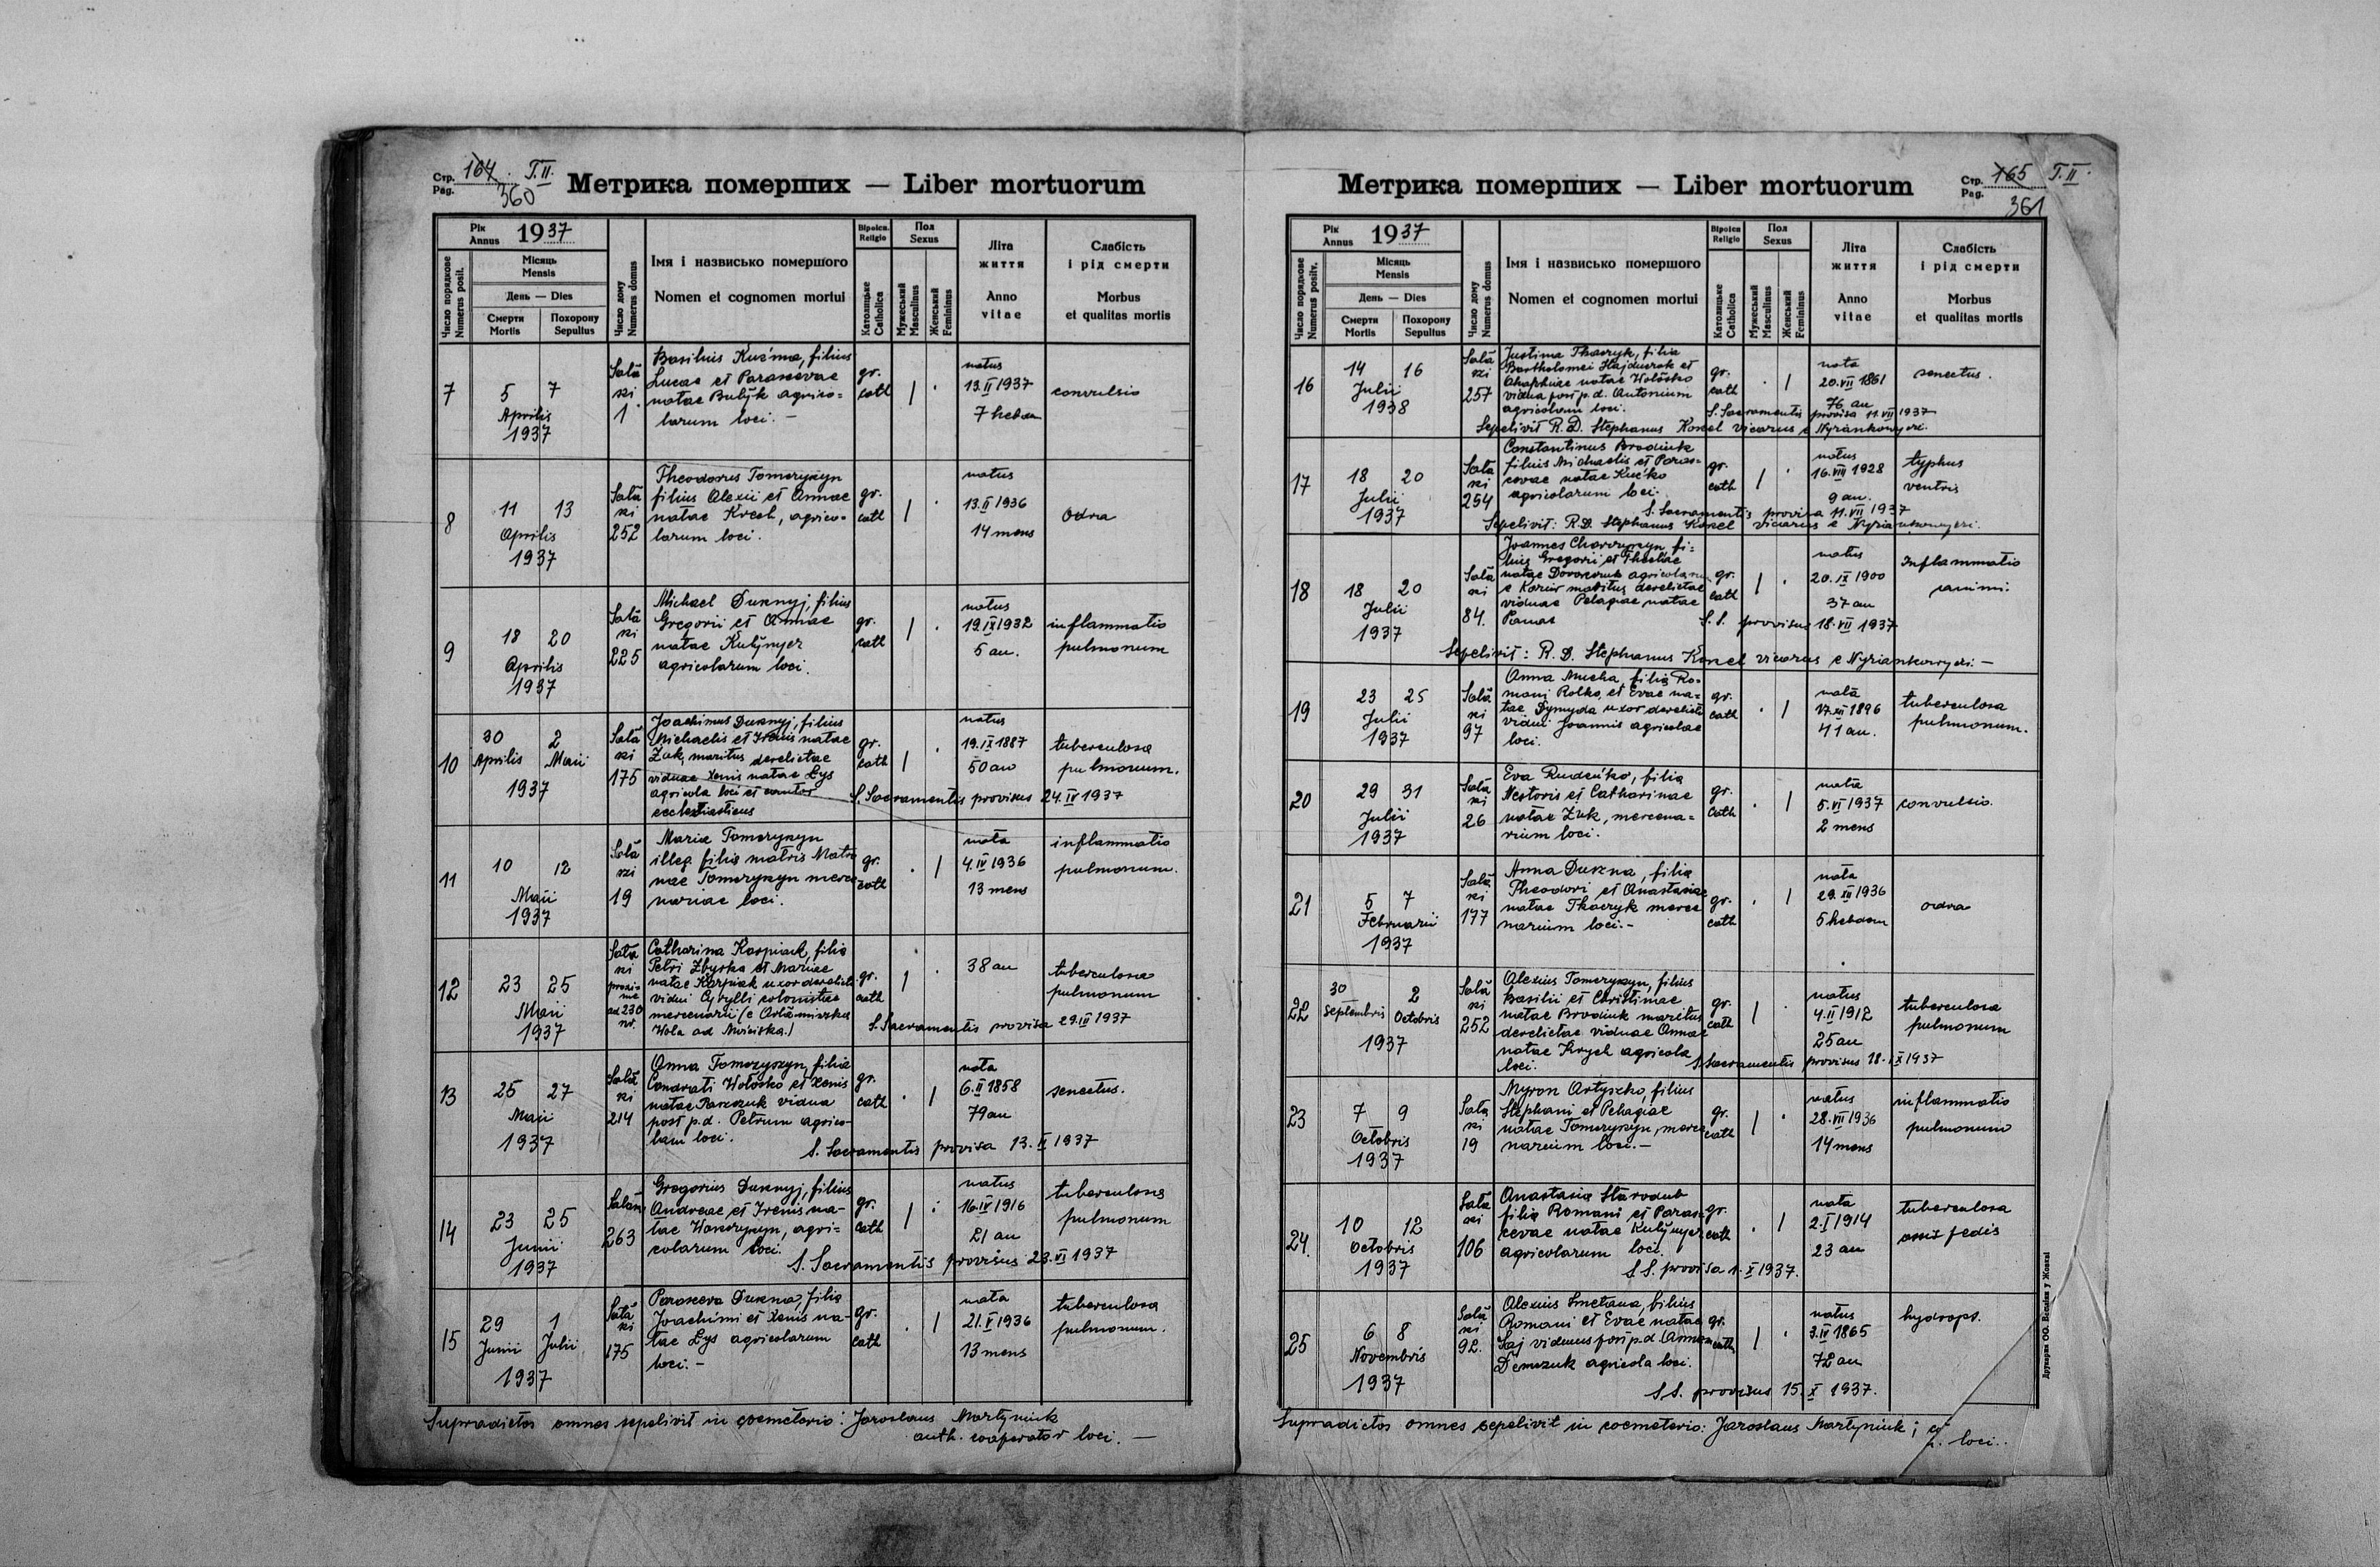 Стр. 164. T.II.
Pag. 360
Метрика померших — Liber mortuorum
Рік
Annus 1937
Число порядкове
Numerus posit.
Місяць
Mensis
День — Dies
Смерти
Mortis
Похорону
Sepultus
Число дому
Numerus domus
Імя і назвисько помершого
Nomen et cognomen mortui
Віроісп.
Religio
Католицьке
Catholica
Пол
Sexus
Мужеський
Masculinus
Женський
Femininus
Літа
життя
Anno
vitae
Слабість
і рід смерти
Morbus
et qualitas mortis
7
5 7
Aprilis
1937
Salā
ski
1
Basilius Kuźma, filius
Lucae et Parascevae
natae Bubÿk agrico=
larum loci. —
gr.
cath
1 .
natus
13.II 1937
7 hebdom
convulsio
8
11 13
Aprilis
1937
Salā
ski
252
Theodorus Tomczyszyn
filius Alexii et Annae
natae Krech, agrico=
larum loci.
gr.
cath
1 .
natus
13.II 1936
14 mens
odra
9
18 20
Aprilis
1937
Salā
ski
225
Michael Duknyj, filius
Gregorii et Annae
natae Kuśnyer
agricolarum loci.
gr.
cath
1 .
natus
19.IX 1932
5 an.
inflammatio
pulmonum
10
30 2
Aprilis Maii
1937
Salā
ski
175
Joachimus Duknyj, filius
Michaelis et Irenis natae
Żuk, maritus derelictae
viduae Xenis natae Lys
agricola loci et cantor
ecclesiasticus
gr.
cath
1 .
natus
19.IX 1887
50 an
tuberculosa
pulmonum.
S. Sacramentis provisus 24.IV 1937
11
10 12
Maii
1937
Salā
ski
19
Maria Tomczyszyn
illeg. filia matris Matro
nae Tomczyszyn merce
nariae loci.
gr.
cath
. 1
nata
4.IV 1936
13 mens
inflammatio
pulmonum.
12
23 25
Maii
1937
Sała
ski
proxi=
me
ad 230
nr.
Catharina Karpiuk, filia
Petri Zbyrka et Mariae
natae Karpiak uxor derelicta
vidui Cyrylli colonistae
mercenarii
Wola ad Mościska.)
gr.
cath
1 .
38 an
tuberculosa
pulmonum
S. Sacramentis provisa 29.IV 1937
13
25 27
Maii
1937
Salā
ski
214
Anna Tomczyszyn, filia
Condrati Wołosko et Xenis
natae Paszczuk vidua
post p.d. Petrum agrico-
lam loci.
gr.
cath
. 1
nata
6.II 1858
79 an
senectus.
S. Sacramentis provisa 13.II 1937
14
23 25
Junii
1937
Salān
263
Gregorius Duknyj, filius
Andreae et Irenis na-
tae Wanczyszyn, agri-
colarum loci.
gr.
cath
1 .
natus
16.IV 1916
21 an
tuberculosa
pulmonum
S. Sacramentis provisus 23.VI 1937
15
29 1
Junii Julii
1937
Salā
ski
175
Parasceva Dukna, filia
Joachimi et Xenis na-
tae Lys agricolarum
loci. -
gr.
cath
. 1
nata
21.V 1936
13 mens
tuberculosa
pulmonum.
Supradictos omnes sepelivit in coemeterio: Jaroslaus Martyniuk
auth. cooperator loci. —
Стр. 165 T.II.
Pag. 361
Метрика померших — Liber mortuorum
Рік
Annus 1937
Число порядкове
Numerus positv.
Місяць
Mensis
День — Dies
Смерти
Mortis
Похорону
Sepultus
Число дому
Numerus domus
Імя і назвисько помершого
Nomen et cognomen mortui
Віроісп
Religio
Католицьке
Catholica
Пол
Sexus
Мужеський
Masculinus
Женський
Femininus
Літа
життя
Anno
vitae
Слабість
і рід смерти
Morbus
et qualitas mortis
16
14 16
Julii
1938
Salā
ski
257
Justina Tkaczyk, filia
Bartholomei Hajduczok et
Ahaphiae natae Wołosko
vidua post p.d. Antonium
agricolam loci.
gr.
cath
. 1
nata
20.VII 1861
76 an
senectus.
S. Sacramentis provisa 11.VII 1937
Sepelivit R.D. Stephanus Konel vicarius e Nyrankowyczi.
17
18 20
Julii
1937
Sała
ski
254
Constantinus Brodiuk
filius Michaelis et Paras=
cevae natae Kućko
agricolarum loci.
gr.
cath
1 .
natus
16.VIII 1928
9 an.
typhus
ventris
S. Sacramentis provisa 11.VII 1937
Sepelivit: R.D. Stephanus Konel vicarius e Nyriankowyczi.
18
18 20
Julii
1937
Salā
ski
84.
Joannes Charczyszyn, fi=
lius Gregorii et Theclae
natae agricolarum
e maritus derelictae
viduae Pelagiae natae
Panas
gr.
cath
1 .
natus
20.IX 1900
37 an
Inflammatio
S.S. provisus 18.VII 1937
Sepelivit: R.D. Stephanus Konel vicarius e Nyriankowyczi. —
19
23 25
Julii
1937
Salā
ski
97
Anna Mucha, filia Ro-
mani Rolko, et Evae na=
tae Dymyda uxor derelicta
vidui Joannis agricolae
loci.
gr.
cath
. 1
nata
17.XII 1896
41 an.
tuberculosa
pulmonum.
20
29 31
Julii
1937
Salā
ski
26
Eva Rudeńko, filia
Nestoris et Catharinae
natae Żuk, mercena=
rium loci.
gr.
cath
. 1
nata
5.VI 1937
2 mens
convulsio.
21
5 7
Februarii
1937
Salā
ski
177
Anna Dukna, filia
Theodori et Anastasiae
natae Tkaczyk merce
narium loci.-
gr.
cath
. 1
nata
29.XII 1936
5 hebdom
odra
22
30 2
Septembris Octobris
1937
Salā
ski
252
Alexius Tomczyszyn, filius
Basilii et Christinae
natae Brodiuk maritus
derelictae viduae Annae
natae Krych agricola
loci.
gr.
cath
1 .
natus
4.II 1912
25 an
tuberculosa
pulmonum
S. Sacramentis provisus 18.IX 1937
23
7 9
Octobris
1937
Sała
ski
19
Myron Artyszko, filius
Stephani et Pelagiae
natae Tomczyszyn, merce
narium loci. —
gr.
cath
1 .
natus
28.VII 1936
14 mens
inflammatio
pulmonum
24.
10 12
Octobris
1937
Sała
ski
106
Anastasia Starodub
filia Romani et Paras
cevae natae Kuśnyer
agricolarum loci.
gr.
cath
. 1
nata
2.I 1914
23 an
tuberculosa
ossis pedis
S.S. provisa 1.X 1937.
25
6 8
Novembris
1937
Salā
ski
92.
Alexius Smetana, filius
Romani et Evae natae
Saj viduus post p.d. Annam
Demczuk agricola loci.
gr.
cath
1 .
natus
3.IV 1865
72 an
hydrops.
S.S. provisus 15.X 1937.
Supradictos omnes sepelivit in coemeterio: Jaroslaus Martyniuk;
loci..
Друкарня ОО. Василіян у Жовкві